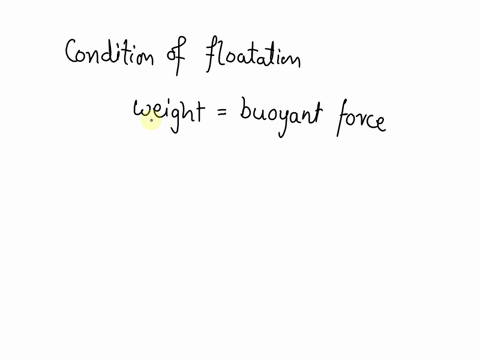 Condition of floatation
weight = buoyant force